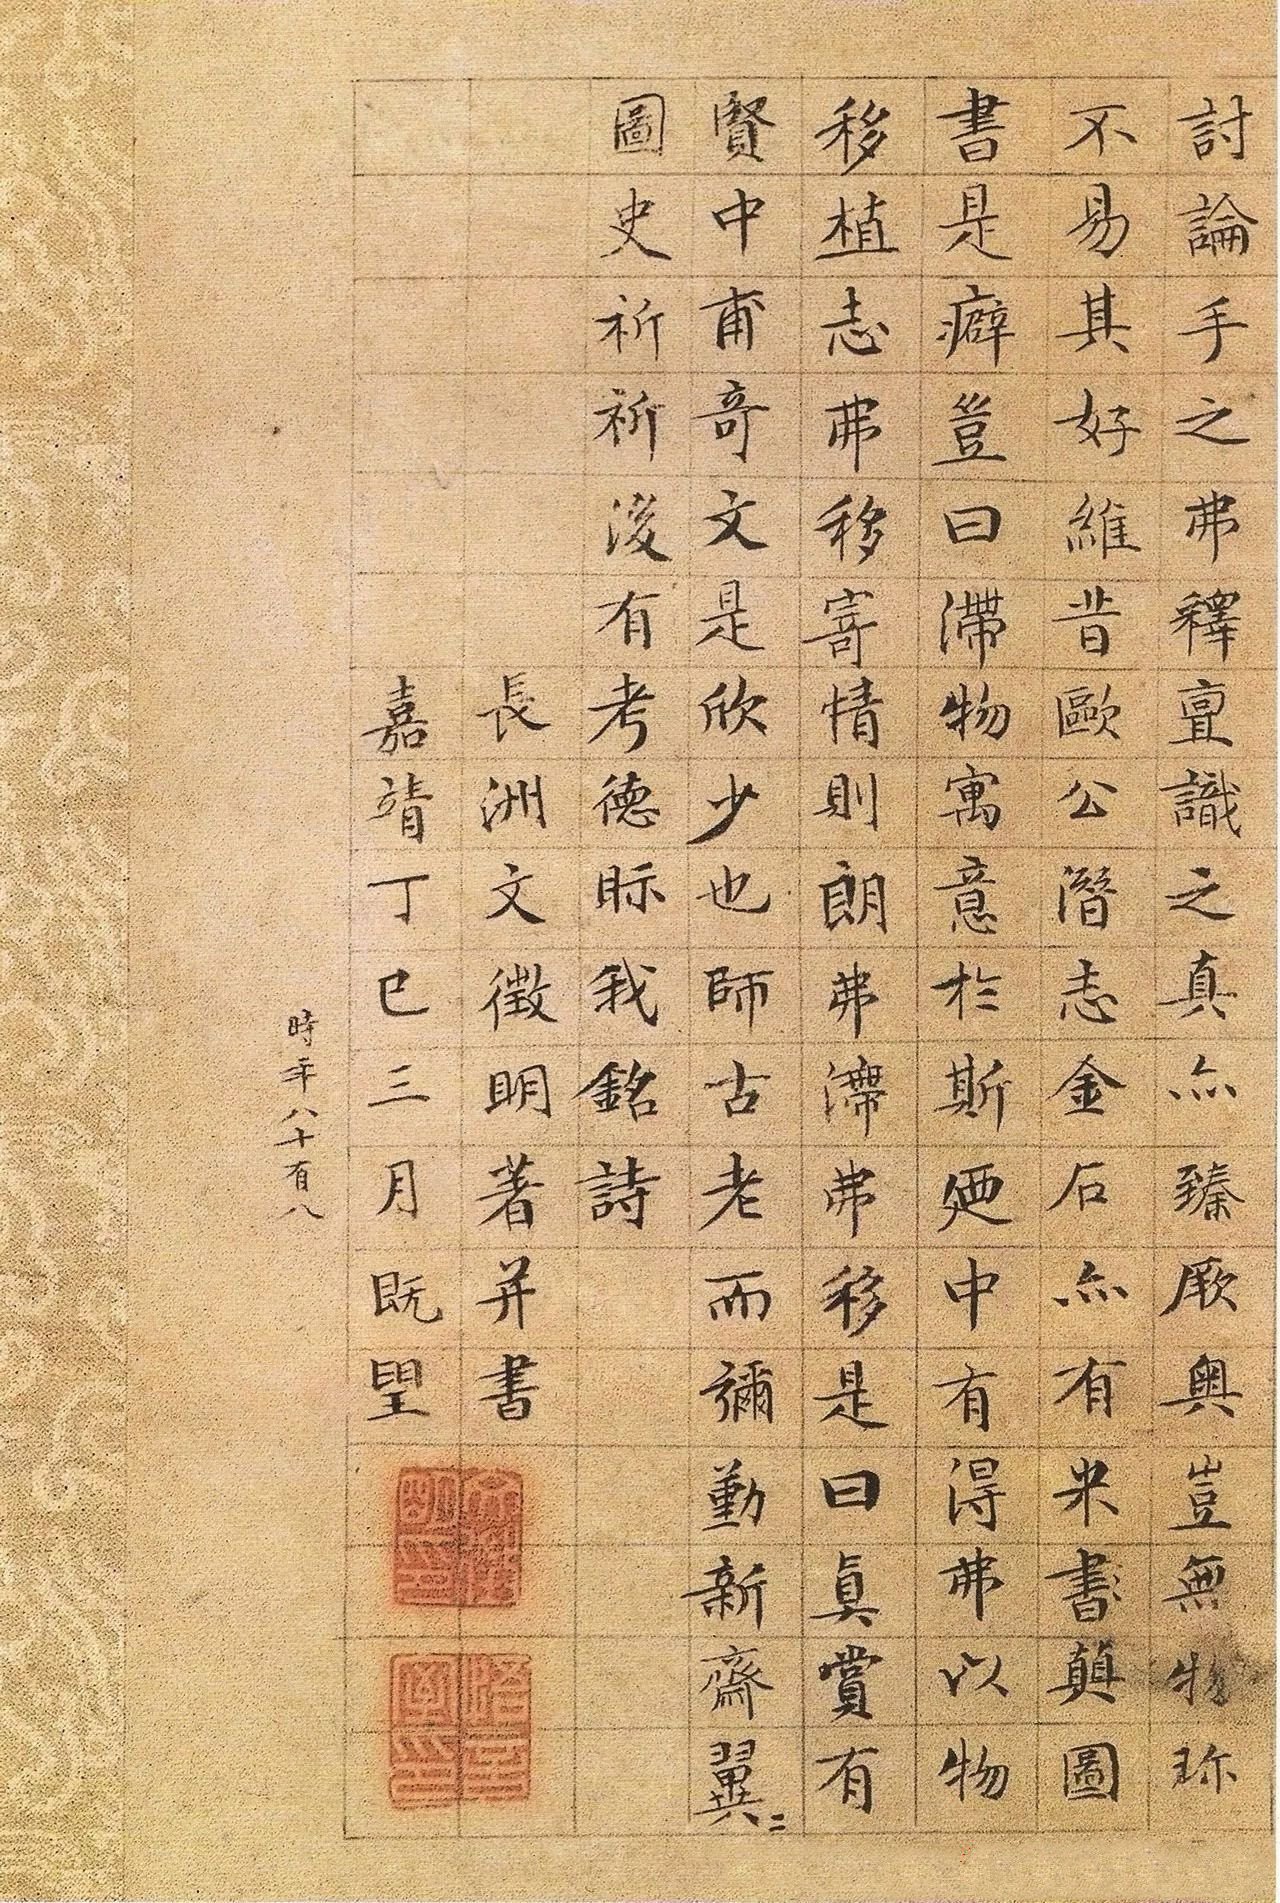 討論手之弗釋亶識之真亦臻厥奧豈無物珎
不易其好維昔歐公潛志金石亦有米書顛圖
書是癖豈曰滯物寓意於斯廼中有得弗以物
移植志弗移寄情則朗弗滯弗移是曰真賞有
賢中甫竒文是欣少也師古老而彌勤新齋翼〻
圖史祈祈後有考德眎我銘詩
長洲文徵明著并書
嘉靖丁巳三月既望
時年八十有八
文徵明印
悟言室印